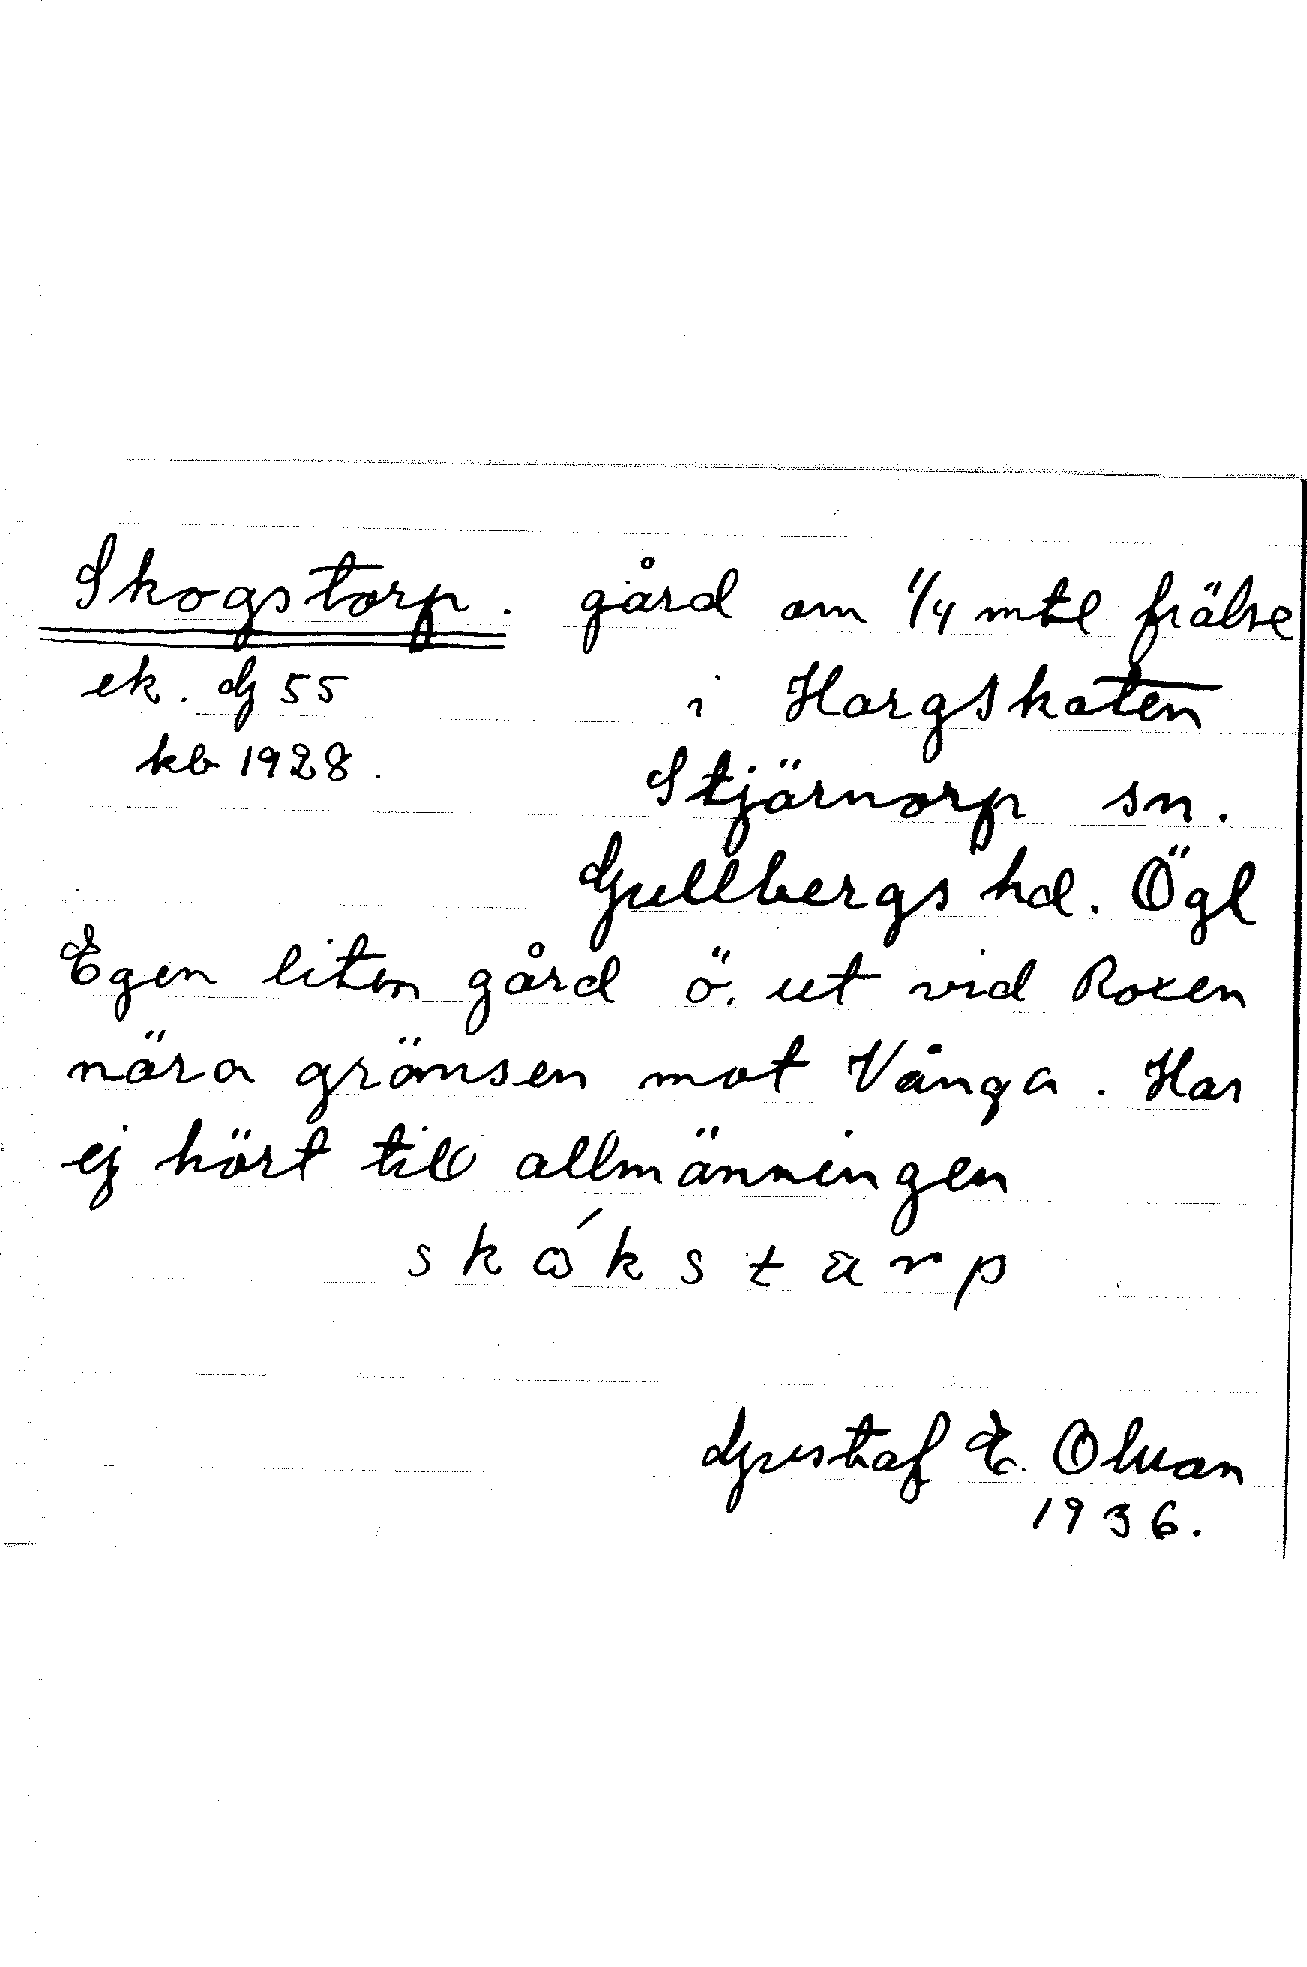 Skogstorp. gård om 1/4 mtl frälse
ek. G 55 i Hargskaten
kb 1928. Stjärnorp sn.
Gullbergs hd. Ögl
Egen liten gård ö. ut vid Roxen
nära gränsen mot Vånga. Har
ej hört till allmänningen
Gustaf E. Olsson
1936.